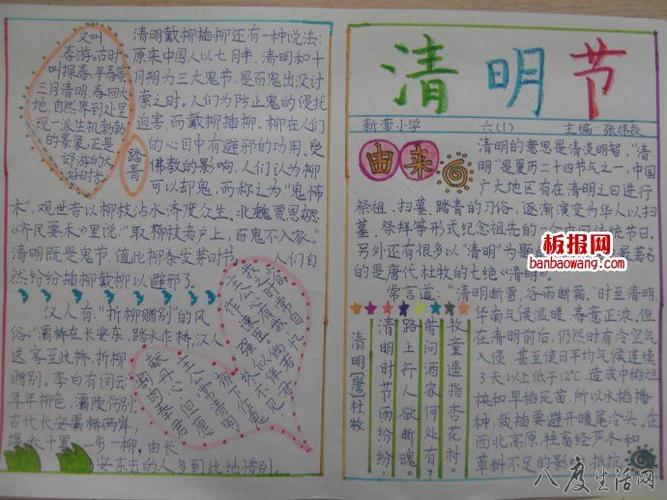 又叫
春游。古时
叫探春、寻春等
三月清明,春回大
地,自然界到处呈
现一派生机勃勃
的景象,正是
郊游的大
好时光
踏青
清明戴柳插柳还有一种说法:
原来中国人以七月半、清明和十
月朔为三大鬼节,是百鬼出没讨
索之时。人们为防止鬼的侵扰
迫害,而戴柳插柳。柳在人们
的心目中有避邪的功用。受
佛教的影响,人们认为柳
可以却鬼,而称之为“鬼怖
木”,观世音以柳枝沾水济度众生。北魏贾思勰
《齐民要术》里说:“取柳枝著户上,百鬼不入家。”
清明既是鬼节,值此柳条发芽时节,人们自
然纷纷插柳戴柳以避邪了。
汉人有“折柳赠别”的风
俗:“灞桥在长安东,跨水作桥,汉人
送客至此桥,折柳
赠别。李白有词云:
年年柳色,灞陵伤别。
古代长安灞桥两岸,
堤长十里,一步一柳,由长
安东去的人多到此地惜别,
清明节
新蕾小学 六(1) 主编:张炜钦
由来
清明的意思是清淡明智,“清
明”是夏历二十四节气之一,中国
广大地区有在清明之日进行
祭祖、扫墓、踏青的习俗,逐渐演变为华人以扫
墓、祭拜等形式纪念祖先的
另外还有很多以“清明”为题
的是唐代杜牧的七绝《清明》。
常言道:“清明断雪,谷雨断霜。”时至清明,
华南气候温暖,春意正浓。但
在清明前后,仍然时有冷空气
入侵,甚至使日平均气候连续
3天以上低于12℃,造成中稻烂
秧和早稻死苗,所以水稻播
种、栽插要避开暖尾冷头。在
西北高原,牲畜经严冬和
草料不足的影响,抵抗
清明[唐]杜牧
清明时节雨纷纷,
路上行人欲断魂。
借问酒家何处有?
牧童遥指杏花村。
板报网
banbaowang.com
八度生活网